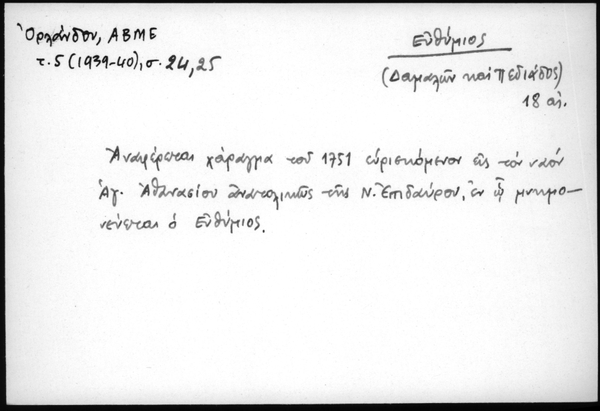 Ὀρλάνδου, ΑΒΜΕ
τ. 5 (1939-40), σ. 24, 25
Εὐθύμιος
(Δαμαλῶν καὶ Πεδιάδος)
18 αἰ.
Ἀναφέρεται χάραγμα τοῦ 1751 εὑρισκόμενον εἰς τὸν ναὸν
Ἁγ. Ἀθανασίου ἀνατολικῶς τῆς Ν. Ἐπιδαύρου, ἐν ᾧ μνημο-
νεύεται ὁ Εὐθύμιος.